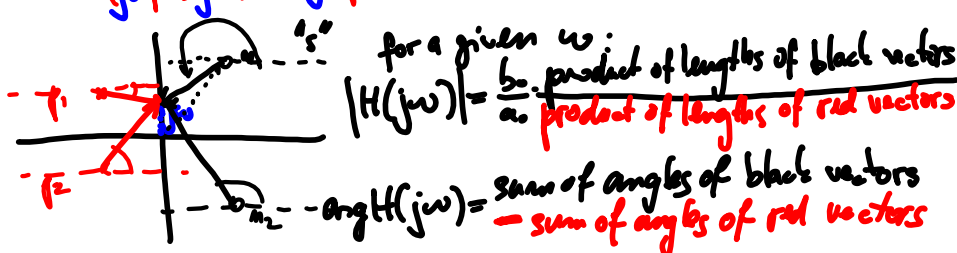 "s"
for a given ω:
|H(jω)| = b₀/a₀ · product of lengths of black vectors
product of lengths of red vectors
jω
r₁
r₂
n₂
arg H(jω) = sum of angles of black vectors
- sum of angles of red vectors